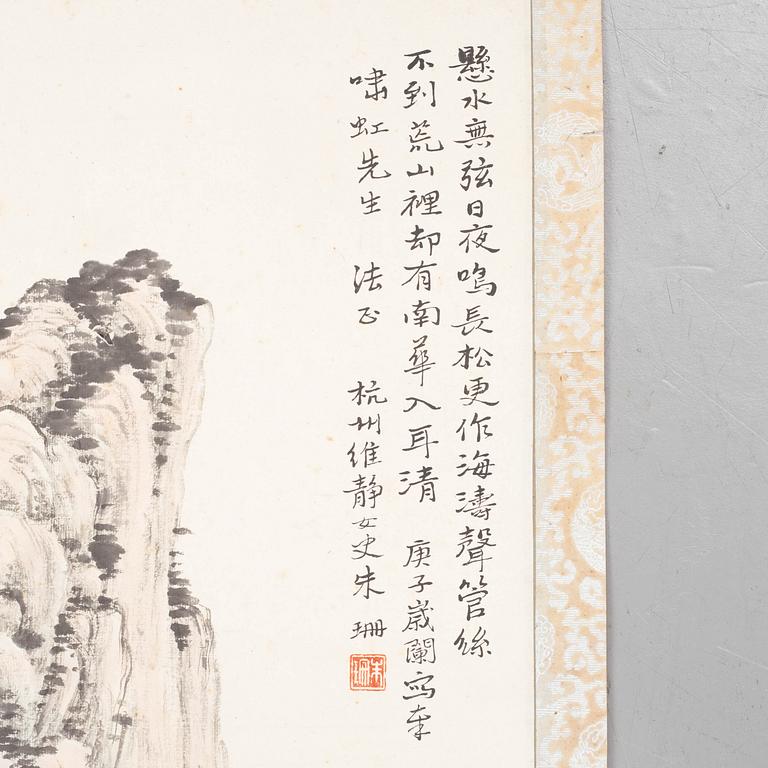 懸水無弦日夜鳴長松更作海濤聲管絲
不到荒山裡却有南華入耳清 庚子歲闌寫奉
嘯虹先生 法正 杭州維靜女史朱珊
朱珊